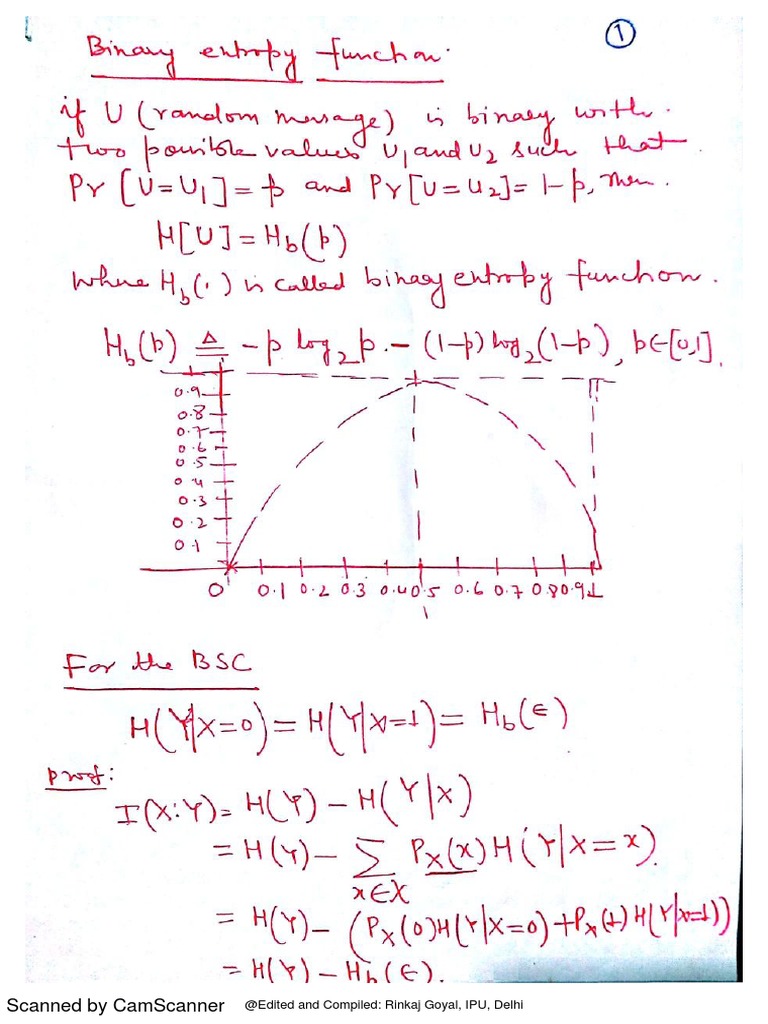 ①
Binary entropy function.
if U (random message) is binary with
two possible values u1 and u2 such that
Pr [U=U1] = p and Pr[U=u2]= 1-p, then.
H[U] = Hb(p)
where Hb(·) is called binary entropy function.
Hb(p) ≜ -p log2 p. - (1-p) log2 (1-p), p∈[0,1].
0.9
0.8
0.7
0.6
0.5
0.4
0.3
0.2
0.1
0 0.1 0.2 0.3 0.4 0.5 0.6 0.7 0.8 0.9 1
For the BSC
H(Y|X=0) = H(Y|X=1) = Hb(ϵ)
proof:
I(X:Y) = H(Y) - H(Y|X)
= H(Y) - ∑ PX(x) H(Y|X=x).
x∈X
= H(Y) - (PX(0)H(Y|X=0) + PX(1) H(Y|X=1))
= H(Y) - Hb(ϵ).
Scanned by CamScanner @Edited and Compiled: Rinkaj Goyal, IPU, Delhi